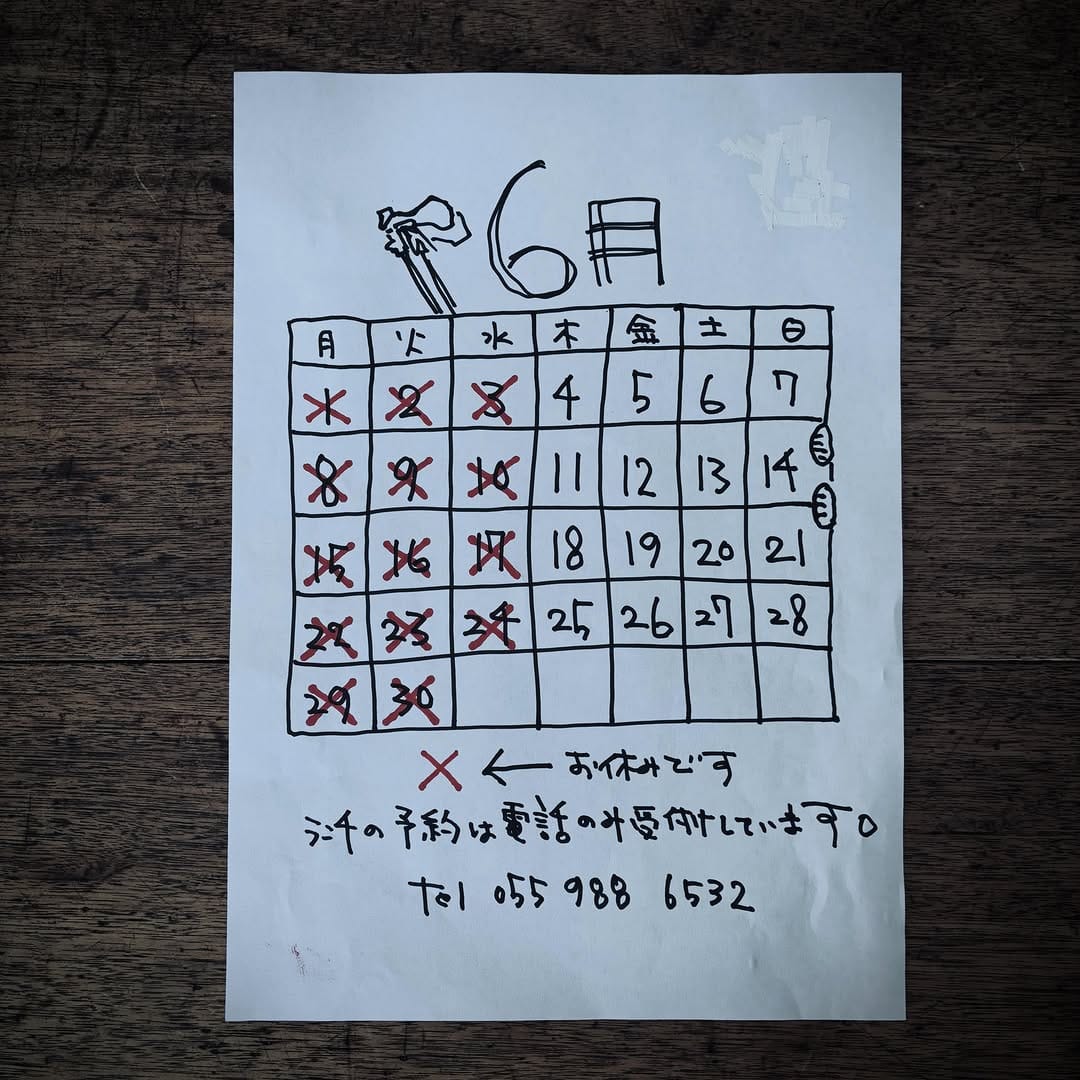 6月
月 火 水 木 金 土 日
1 2 3 4 5 6 7
8 9 10 11 12 13 14
15 16 17 18 19 20 21
22 23 24 25 26 27 28
29 30
× ← お休みです
ランチの予約は電話のみ受付けしています。
Tel 055 988 6532